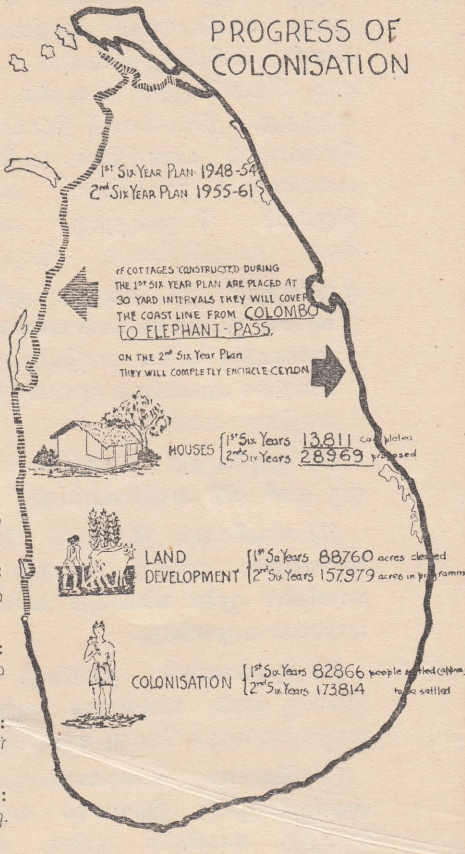 PROGRESS OF
COLONISATION
1st SIX YEAR PLAN 1948-54
2nd SIX YEAR PLAN 1955-61
IF COTTAGES CONSTRUCTED DURING
THE 1ST SIX YEAR PLAN ARE PLACED AT
30 YARD INTERVALS THEY WILL COVER
THE COAST LINE FROM COLOMBO
TO ELEPHANT-PASS.
ON THE 2nd Six Year Plan
THEY WILL COMPLETELY ENCIRCLE CEYLON
HOUSES { 1st Six Years 13,811 completed
2nd Six Years 28969 proposed
LAND
DEVELOPMENT { 1st Six Years 88760 acres cleared
2nd Six Years 157,979 acres in programm
COLONISATION { 1st Six Years 82866 people settled (approx)
2nd Six Years 173814 to be settled